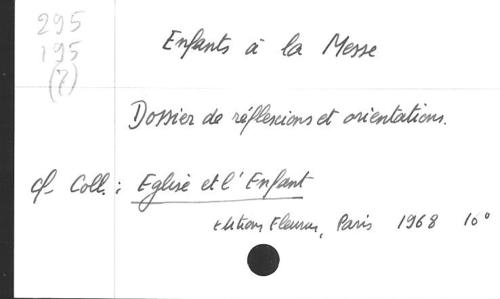 295
195
(7)
Enfants à la Messe
Dossier de réflexions et orientations.
cf. Coll. : Eglise et l'Enfant
Editions Fleurus, Paris 1968 10°